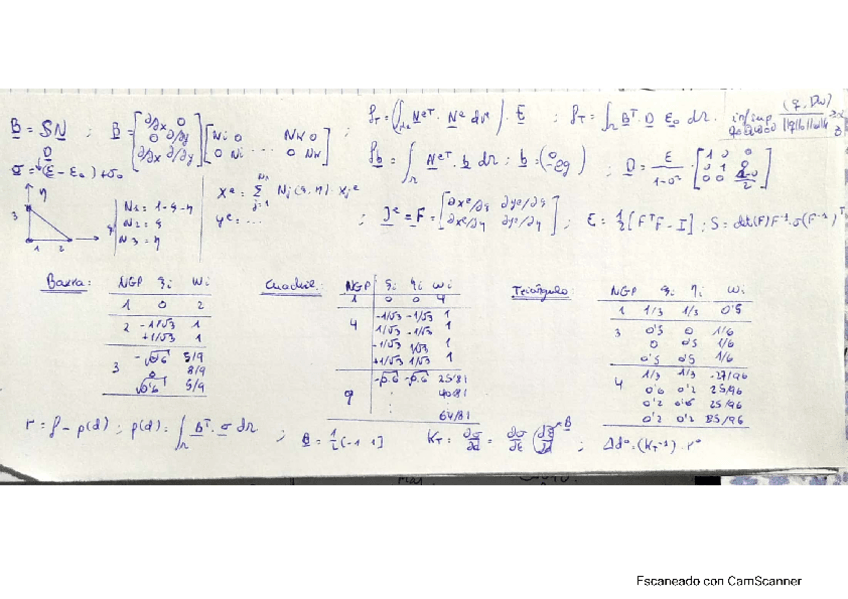 B = SN ; B = [∂/∂x 0 0 ∂/∂y ∂/∂x ∂/∂y] [Ni 0 Nk 0 0 Ni ... 0 Nk] ; f_T = (∫ N^eT · N^e dΩ) · E ; f_T = ∫_Ω B^T · D ε₀ dΩ. inf sup (q, Dw)
D
σ = (ε - ε₀) + σ₀
f_b = ∫_Ω N^eT · b dΩ ; b = (0 -ρg) ; D = E/1-υ² · [1 0 0 0 1 0 0 0
η
3
1 2
N1 = 1-ξ-η
N2 = ξ
N3 = η
x^e = Σ Nj(ξ,η) · xj^e
y^e = ...
; J^e = F = [∂x^e/∂ξ ∂y^e/∂ξ ∂x^e/∂η ∂y^e/∂η] ; E = 1/2 [F^T F - I] ; S = det(F) F^-1 · σ(F^-1)^T
Barra:
NGP ξi wi
1 0 2
2 -1/√3 1
+1/√3 1
3 -√0.6 5/9
0 8/9
√0.6 5/9
Cuadril.:
NGP ξi ηi wi
1 0 0 4
4 -1/√3 -1/√3 1
1/√3 -1/√3 1
-1/√3 1/√3 1
+1/√3 1/√3 1
9 -√0.6 -√0.6 25/81
⋮ 40/81
⋮ 64/81
Triángulo:
NGP ξi ηi wi
1 1/3 1/3 0'5
3 0'5 0 1/6
0 0'5 1/6
0'5 0'5 1/6
4 1/3 1/3 -27/96
0'6 0'2 25/96
0'2 0'6 25/96
0'2 0'2 25/96
r = f - p(d) ; p(d) = ∫_Ω B^T · σ dΩ ; B = 1/2 [-1 1] K_T = ∂σ/∂d = ∂σ/∂ε (dε/dd) B ; Δd⁰ = (K_T^-1) · r⁰
Escaneado con CamScanner